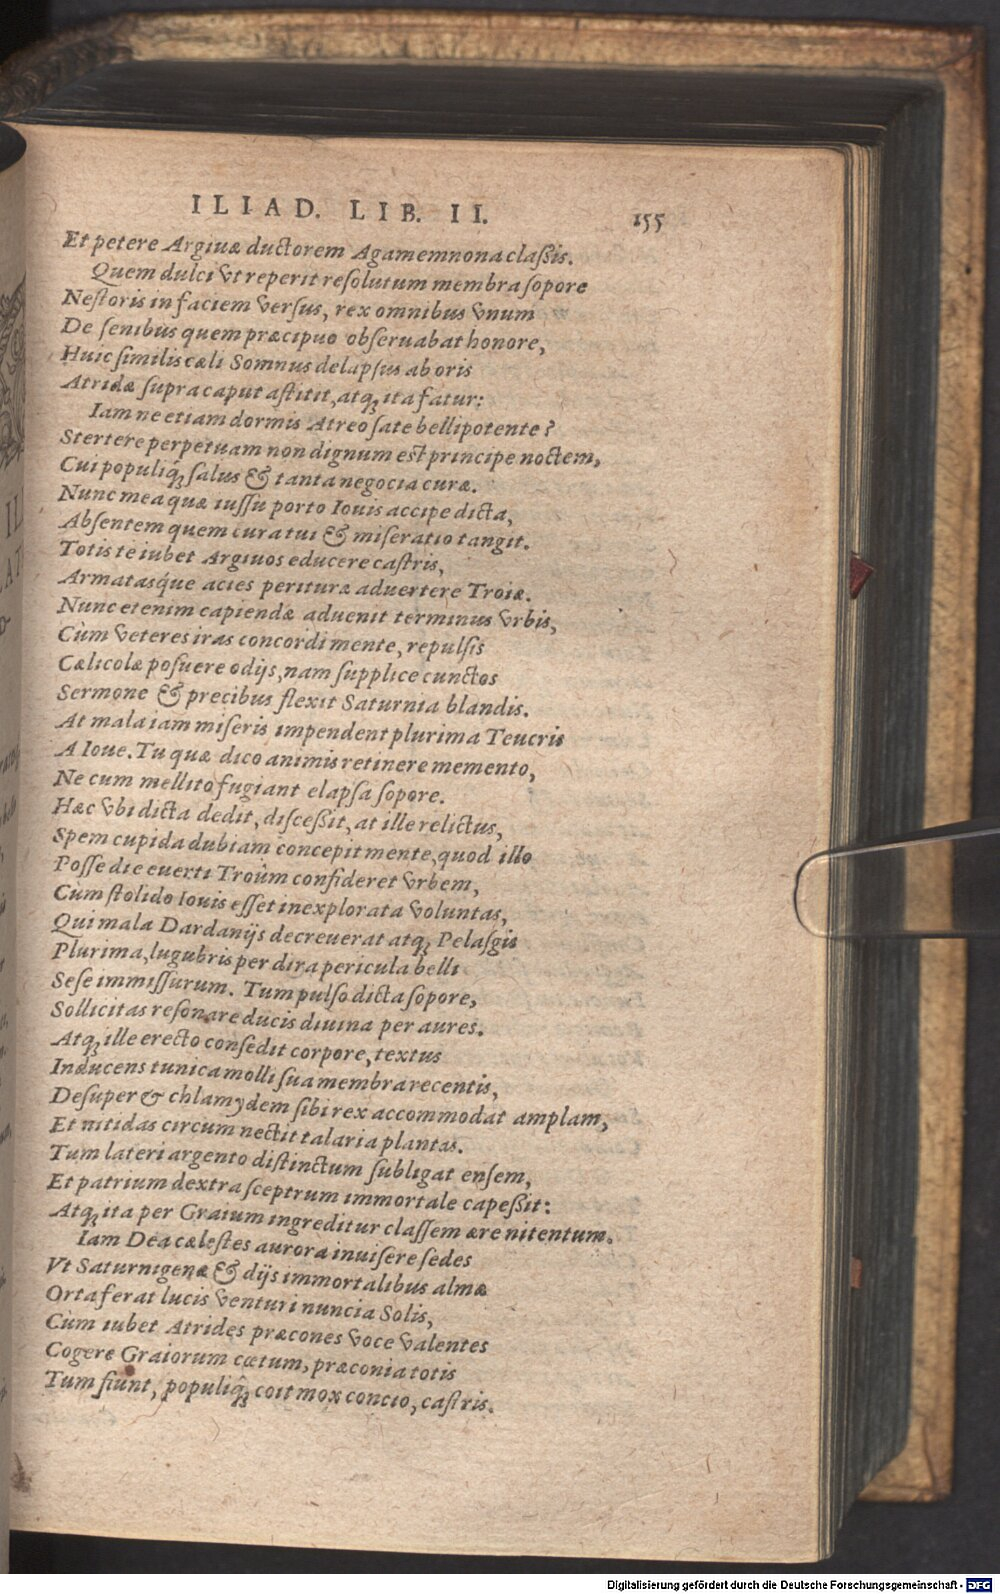 ILIAD. LIB. II. 155
Et petere Argiuæ ductorem Agamemnona claßis.
Quem dulci vt reperit reſolutum membra ſopore
Neſtoris in faciem verſus, rex omnibus vnum
De ſenibus quem præcipuo obſeruabat honore,
Huic ſimilis cæli Somnus delapſus ab oris
Atridæ ſupra caput aſtitit, atq; ita fatur:
Iam ne etiam dormis Atreo ſate bellipotente?
Stertere perpetuam non dignum est principe noctem,
Cui populiq; ſalus & tanta negocia curæ.
Nunc mea quæ iuſſu porto Iouis accipe dicta,
Abſentem quem cura tui & miſeratio tangit.
Totis te iubet Argiuos educere caſtris,
Armatasque acies perituræ aduertere Troiæ.
Nunc etenim capiendæ aduenit terminus vrbis,
Cùm veteres iras concordi mente, repulſis
Cælicolæ poſuere odijs, nam ſupplice cunctos
Sermone & precibus flexit Saturnia blandis.
At mala iam miſeris impendent plurima Teucris
A Ioue. Tu quæ dico animis retinere memento,
Ne cum mellito fugiant elapſa ſopore.
Hæc vbi dicta dedit, diſceßit, at ille relictus,
Spem cupida dubiam concepit mente, quod illo
Poſſe die euerti Troûm confideret vrbem,
Cùm ſtolido Iouis eſſet inexplorata voluntas,
Qui mala Dardanijs decreuerat atq; Pelaſgis
Plurima, lugubris per dira pericula belli
Seſe immiſſurum. Tum pulſo dicta ſopore,
Sollicitas reſonare ducis diuina per aures.
Atq; ille erecto conſedit corpore, textus
Inducens tunica molli ſua membra recentis,
Deſuper & chlamydem ſibi rex accommodat amplam,
Et nitidas circum nectit talaria plantas.
Tum lateri argento diſtinctum ſubligat enſem,
Et patrium dextra ſceptrum immortale capeßit:
Atq; ita per Graium ingreditur claſſem ære nitentum.
Iam Dea cæleſtes aurora inuiſere ſedes
Vt Saturnigenæ & dijs immortalibus almæ
Orta ferat lucis venturi nuncia Solis,
Cùm iubet Atrides præcones voce valentes
Cogere Graiorum cœtum, præconia totis
Tum fiunt, populiq; coit mox concio, caſtris.
Digitalisierung gefördert durch die Deutsche Forschungsgemeinschaft - DFG